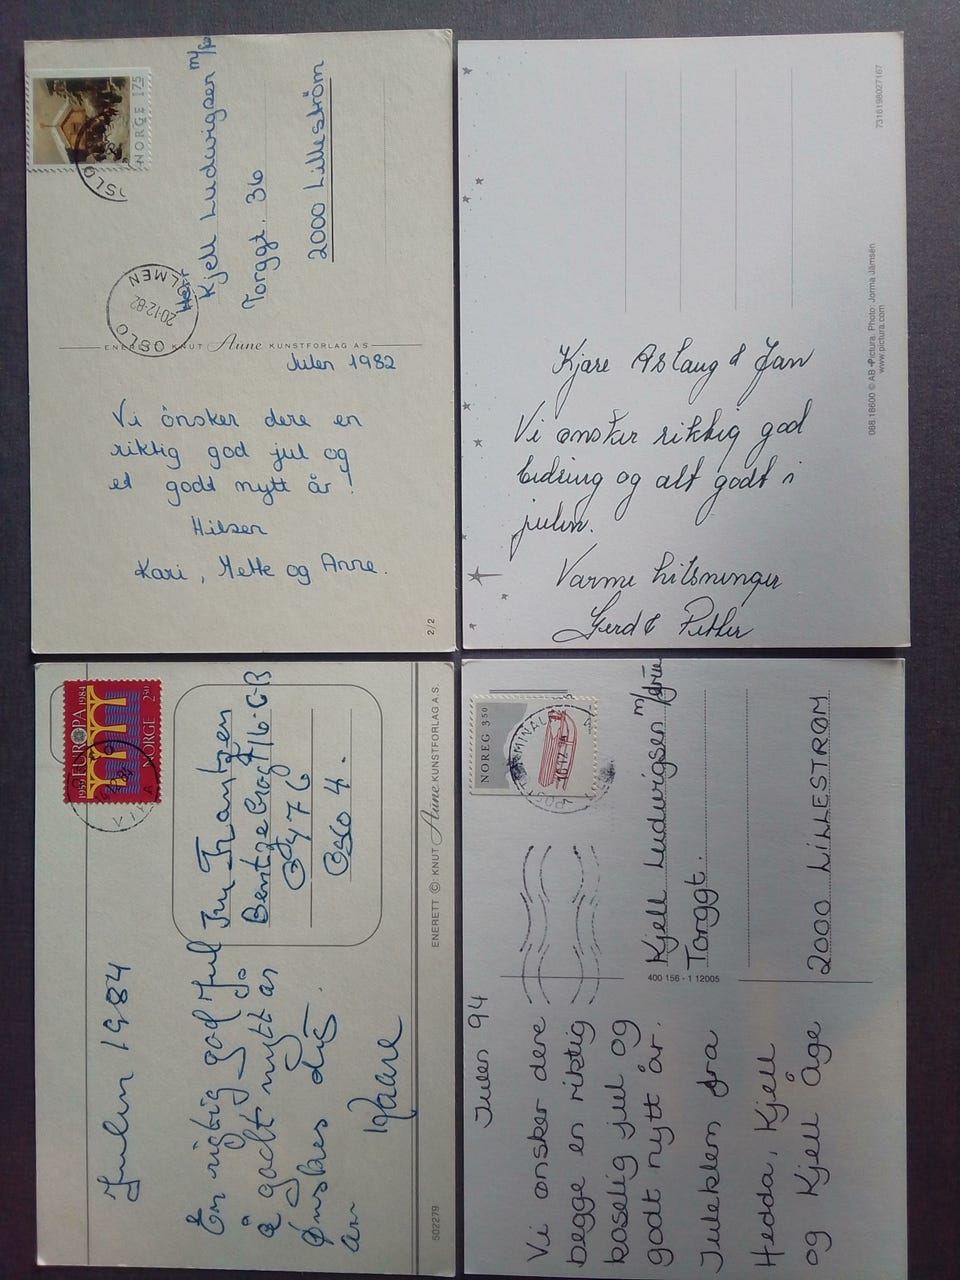 NORGE 175
OSLO
OSLO
HOLMEN
20-12-82
Herr
Kjell Ludvigsen m/fr
Torggt. 36
2000 Lilleström
ENERETT KNUT Aune KUNSTFORLAG AS
Julen 1982
Vi önsker dere en
riktig god jul og
et godt nytt år!
Hilsen
Kari, Mette og Anne.
2/2
7316198027167
068 18600 © AB Pictura. Photo: Jorma Jämsén
www.pictura.com
Kjære Aslaug & Jan
Vi ønsker riktig god
bedring og alt godt i
julen.
Varme hilsninger
Gerd & Petter
1959 EUROPA 1984
NORGE 250
Julen 1984
En rigtig god Jul
å godt nytt år
Ønskes dig.
Kaare
Bentsebrogt 16. C-B
0476
Oslo 4.
ENERETT © KNUT Aune KUNSTFORLAG A.S.
502279
NOREG 350
Julen 94
Vi ønsker dere
begge en riktig
koselig jul og
godt nytt år.
Juleklem fra
Hedda, Kjell
og Kjell Åge
Kjell Ludvigsen m/frue
Torggt.
2000 LILLESTRØM
400 156 - 1 12005